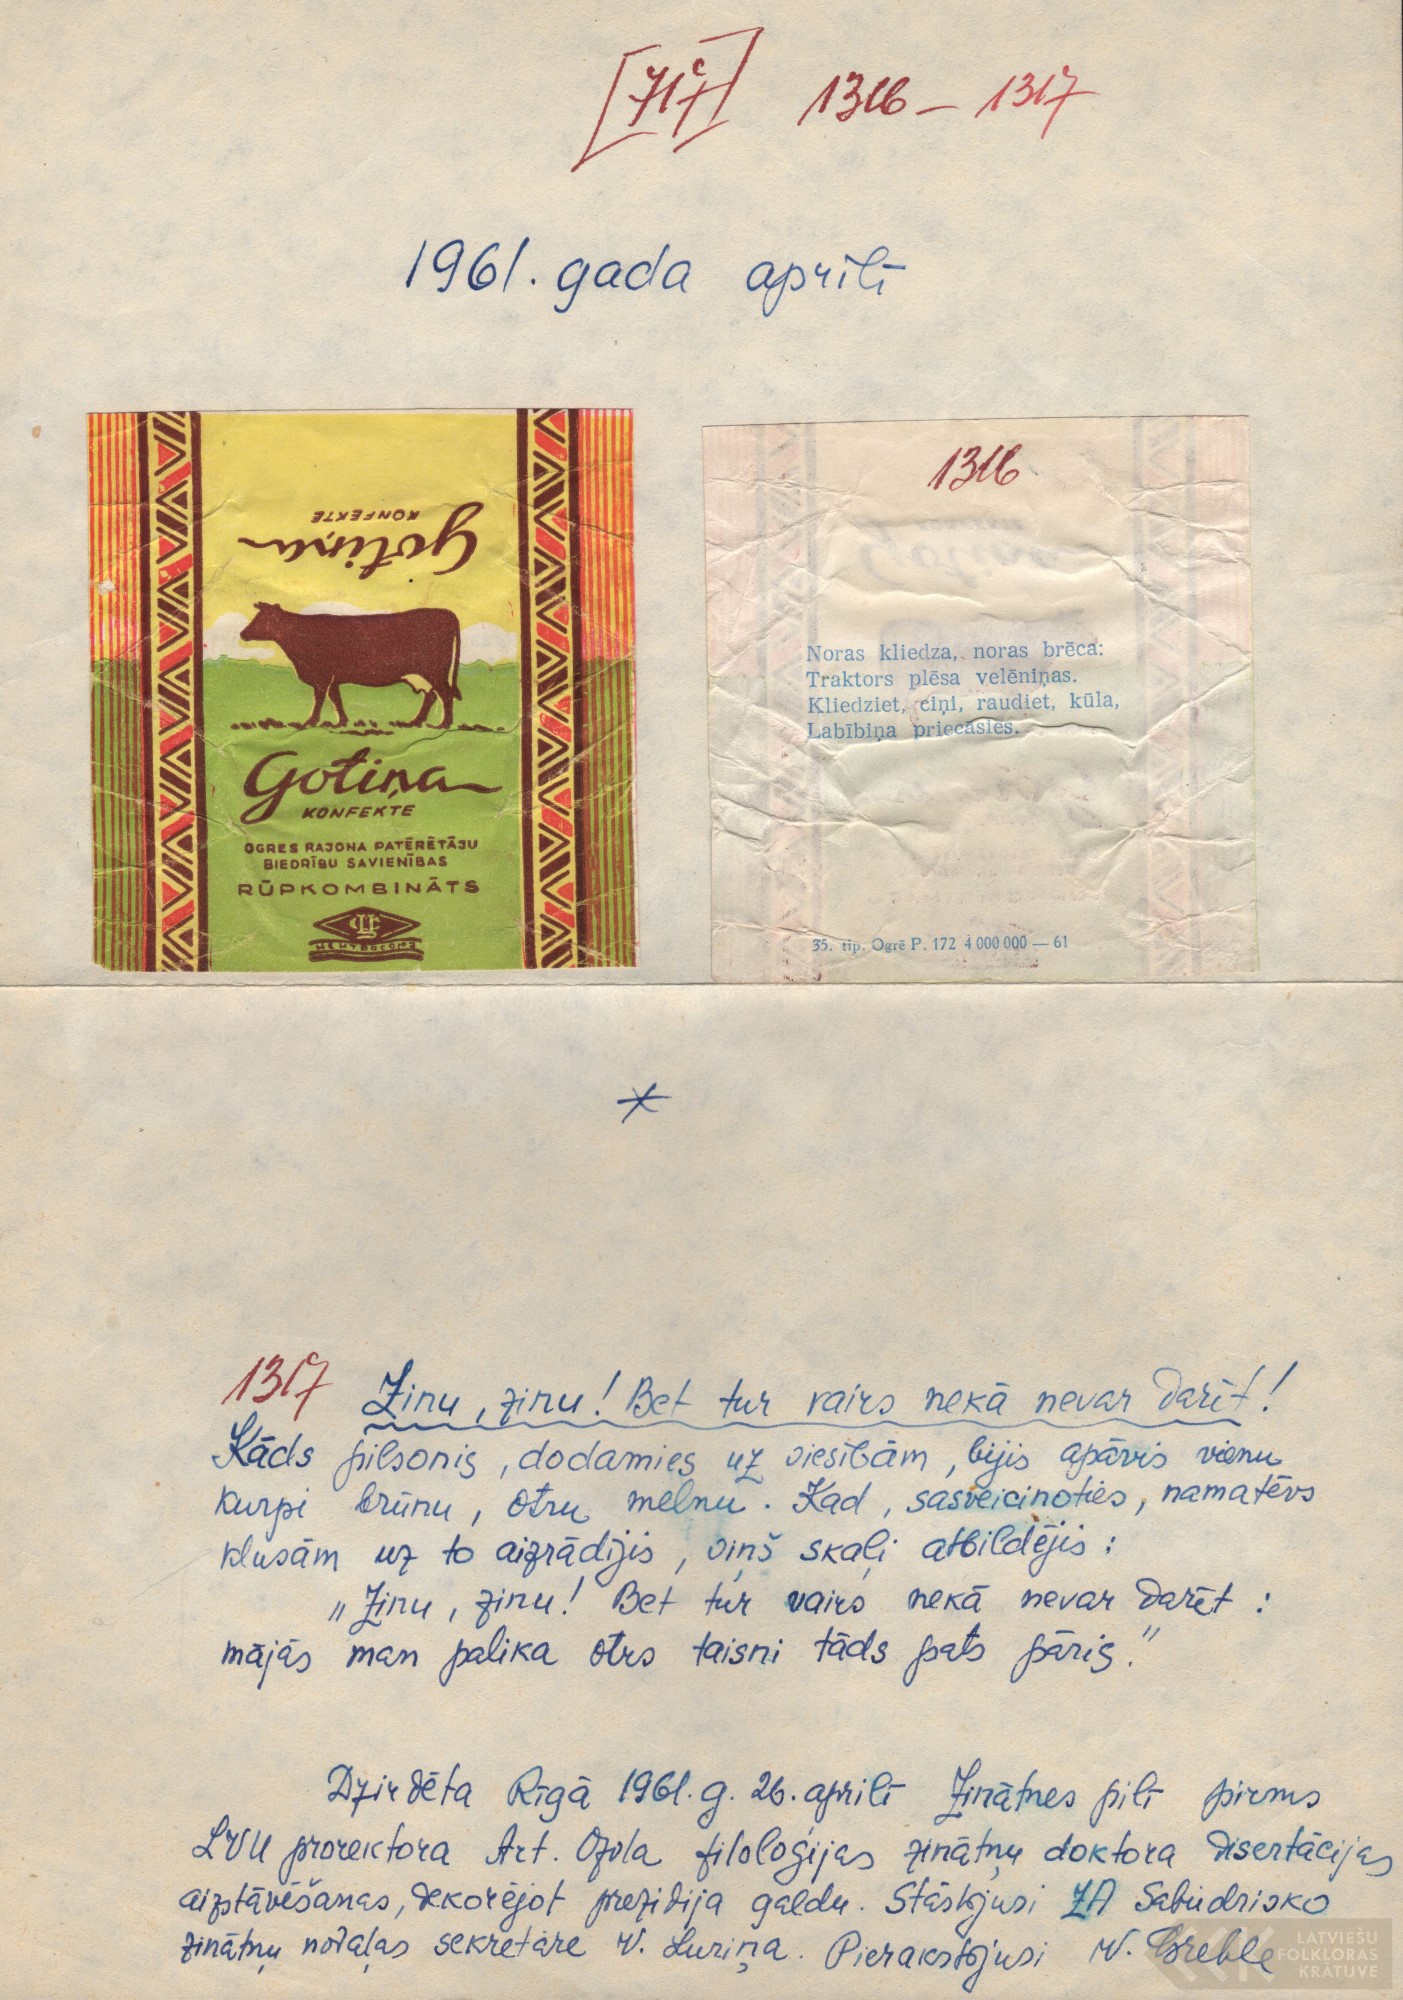 [717] 1316 – 1317
1961. gada aprīlī
Gotiņa
KONFEKTE
Gotiņa
KONFEKTE
OGRES RAJONA PATĒRĒTĀJU
BIEDRĪBU SAVIENĪBAS
RŪPKOMBINĀTS
1316
Noras kliedza, noras brēca:
Traktors plēsa velēniņas.
Kliedziet, ciņi, raudiet, kūla,
Labībiņa priecāsies.
35. tip. Ogrē P. 172 4 000 000 — 61
1317 Zinu, zinu! Bet tur vairs nekā nevar darīt!
Kāds pilsonis, dodamies uz viesībām, bijis apāvis vienu
kurpi brūnu, otru melnu. Kad, sasveicinoties, namatēvs
klusām uz to aizrādījis, viņš skaļi atbildējis:
„Zinu, zinu! Bet tur vairs nekā nevar darīt:
mājās man palika otrs taisni tāds pats pāris."
Dzirdēta Rīgā 1961. g. 26. aprīlī Zinātnes pilī pirms
LVU prorektora Art. Ozola filoloģijas zinātņu doktora disertācijas
aizstāvēšanas, dekorējot prezidija galdu. Stāstījusi ZA Sabiedrisko
zinātņu nodaļas sekretāre V. Luriņa. Pierakstījusi V. Greble
LATVIEŠU
FOLKLORAS
KRĀTUVE